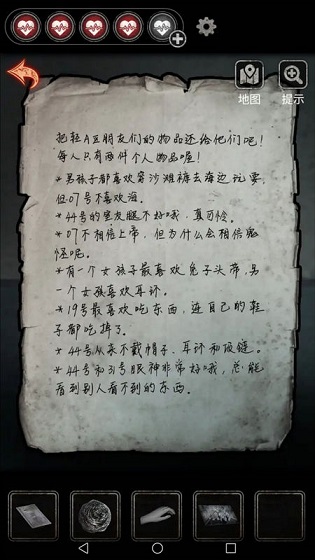 地图
提示
把轻A豆朋友们的物品还给他们吧！
每人只有两件个人物品喔！
*男孩子都喜欢穿沙滩裤去海边玩耍，
但07号不喜欢海。
*44号的男友腿不好哦，真可怜。
*07不相信上帝，但为什么会相信鬼
怪呢。
*有一个女孩子最喜欢兔子头带，另
一个女孩喜欢耳环。
*19号最喜欢吃东西，连自己的鞋
子都吃掉了。
*44号从来不戴帽子、耳环和项链。
*44号和31号眼神非常好哦，总能
看到别人看不到的东西。